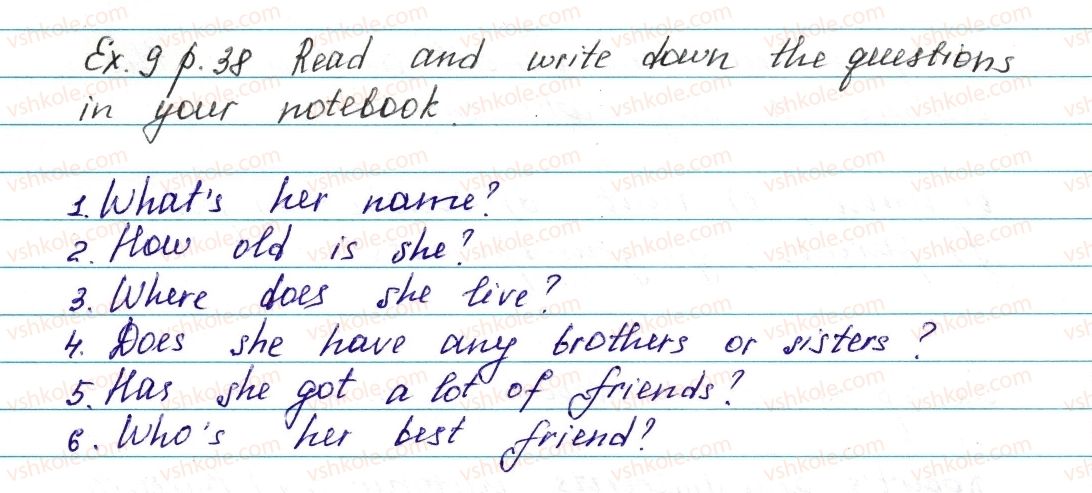 Ex. 9 p. 38 Read and write down the questions
in your notebook.
1. What's her name?
2. How old is she?
3. Where does she live?
4. Does she have any brothers or sisters?
5. Has she got a lot of friends?
6. Who's her best friend?